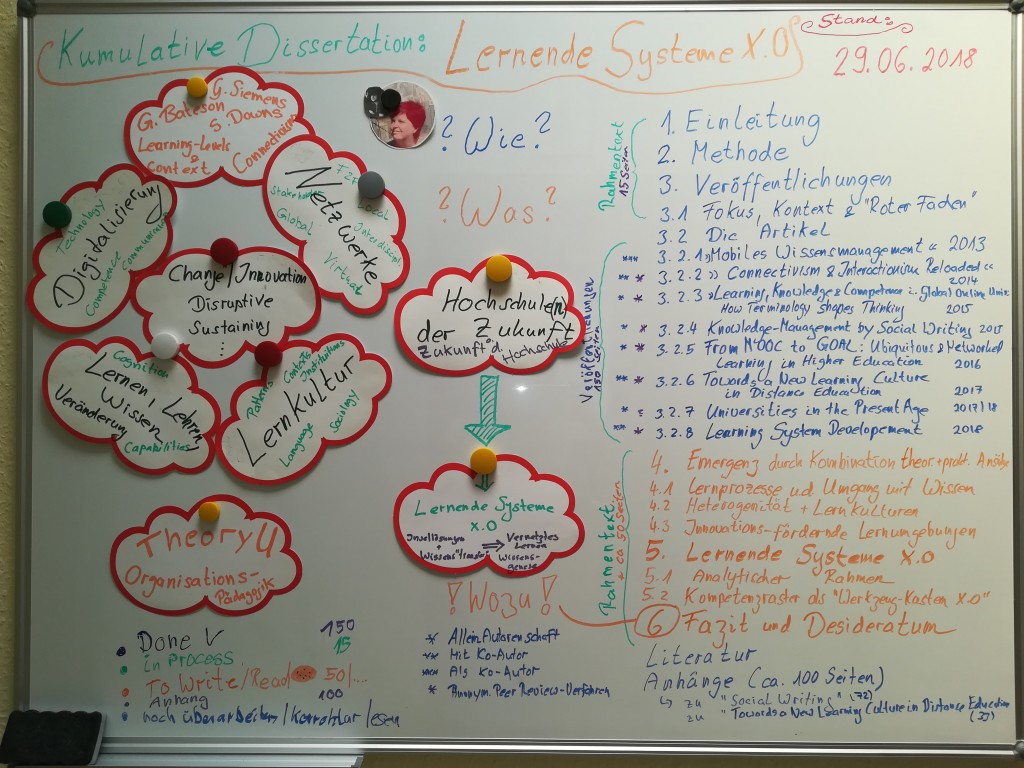 Kumulative Dissertation: Lernende Systeme X.0
Stand:
29.06.2018
G. Siemens
G. Bateson
S. Downs
Learning-Levels
& Context
Connectivism
Digitalisierung
Technology
Competence
Communication
Netzwerke
F2F
Stakeholder
Local
Global
Interdiscipl.
Virtual
Change/Innovation
Disruptive
Sustaining
⋮
Lernen, Lehren
Wissen
Veränderung
Cognition
Capabilities
Lernkultur
Patterns
Contexts
Institutions
Language
Sociology
Theory U
Organisations-
Pädagogik
? Wie ?
? Was ?
Hochschule(n)
der Zukunft
Zukunft d. Hochschule
Lernende Systeme
X.0
Insellösungen
+
Wissenstransfer
⇒ Vernetztes
Lernen
Wissens-
genese
! Wozu !
Rahmentext
15 Seiten
1. Einleitung
2. Methode
3. Veröffentlichungen
3.1 Fokus, Kontext & "Roter Faden"
3.2 Die Artikel
Veröffentlichungen
150 Seiten
*** 3.2.1 »Mobiles Wissensmanagement« 2013
** * 3.2.2 »Connectivism & Interactionism Reloaded« 2014
* * 3.2.3 »Learning, Knowledge & Competence i. Global Online Univ.
How Terminology shapes Thinking 2015
* * 3.2.4 Knowledge-Management by Social Writing 2015
* * 3.2.5 From MOOC to GOAL: Ubiquitous & Networked
Learning in Higher Education 2016
** * 3.2.6 Towards a New Learning Culture
in Distance Education 2017
* * 3.2.7 Universities in the Present Age 2017/18
** * 3.2.8 Learning System Developement 2018
Rahmentext
+ ca 50 Seiten
4. Emergenz durch Kombination theor. + prakt. Ansätze
4.1 Lernprozesse ud Umgang mit Wissen
4.2 Heterogenität + Lernkulturen
4.3 Innovations-fördernde Lernumgebungen
5. Lernende Systeme X.0
5.1 Analytischer Rahmen
5.2 Kompetenzraster als "Werkzeug-Kasten X.0"
6 Fazit und Desideratum
Literatur
Anhänge (ca. 100 Seiten)
↳ zu "Social Writing" (72)
zu "Towards a New Learning Culture in Distance Education
Done V 150
in Process 15
To Write/Read 50/....
Anhang 100
noch überarbeiten/Korrektur lesen
* Alleinautorenschaft
** Mit Ko-Autor
*** Als Ko-Autor
* Anonym. Peer Review-Verfahren